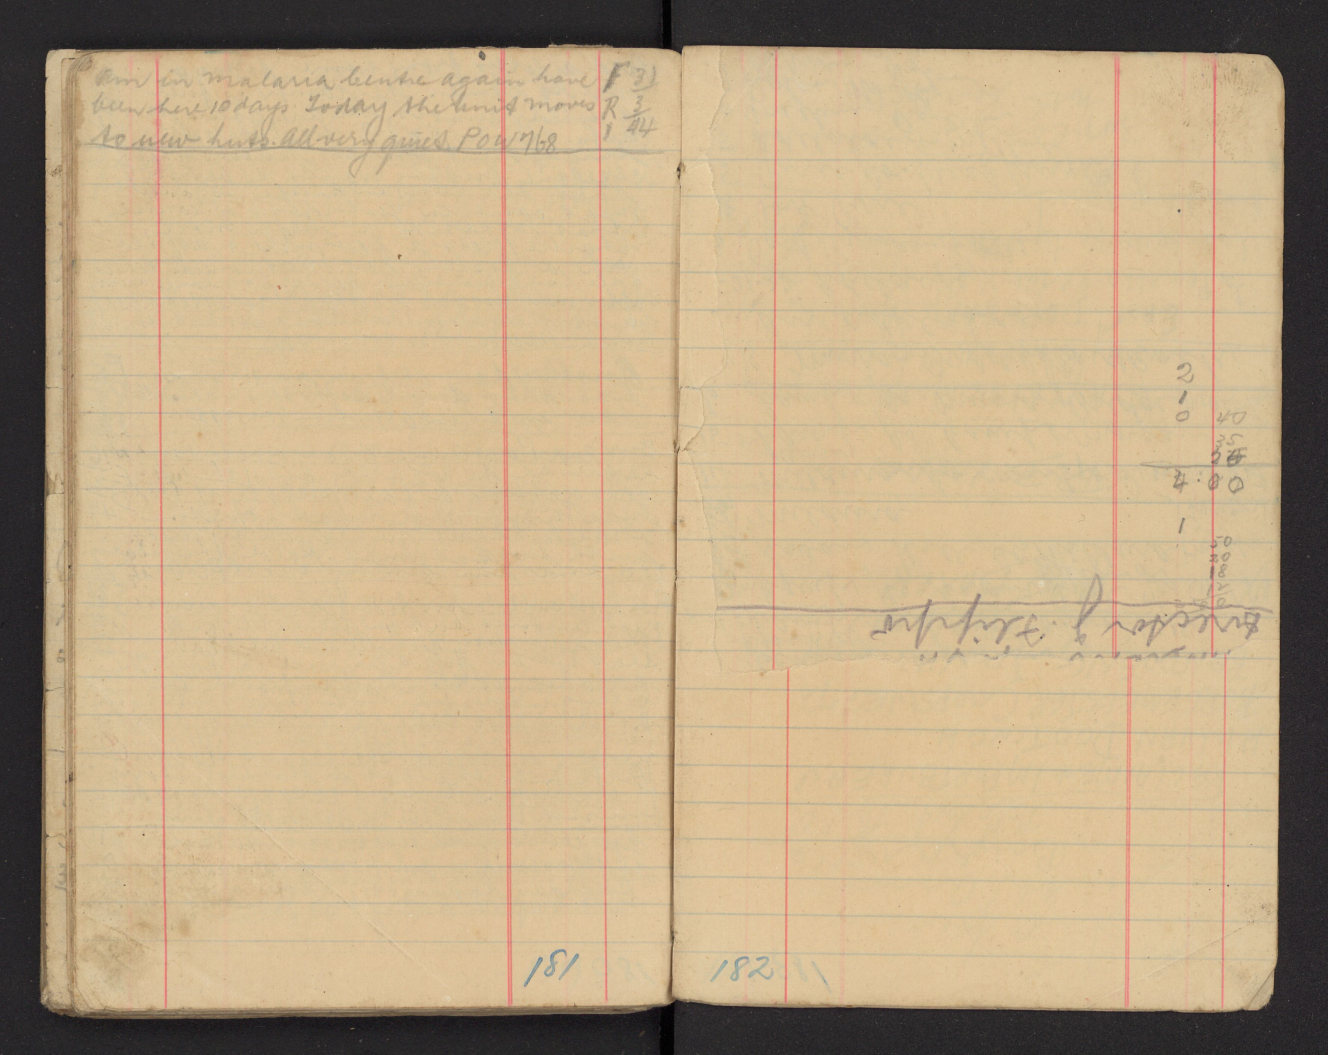 Am in Malaria Centre again have
been here 10 days Today the unit moves
to new huts. All very quiet. POW 768
F 31
R 3
I 44
2
1
0 40
35
4:00
1
50
20
18
Director J. Flippo
181
182